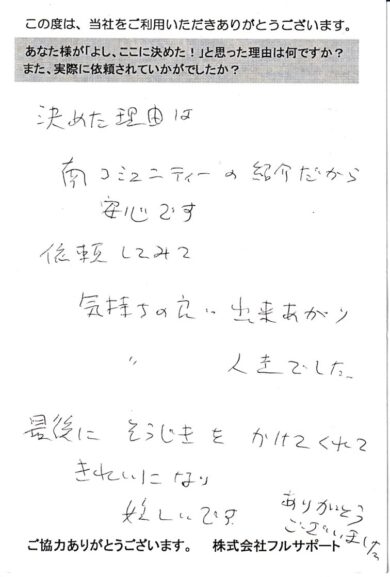 この度は、当社をご利用いただきありがとうございます。
あなた様が「よし、ここに決めた！」と思った理由は何ですか？
また、実際に依頼されていかがでしたか？
決めた理由は
南コミュニティーの紹介だから
安心です
依頼してみて
気持ちの良い出来あがり
〃 人達でした
最後に そうじきを かけてくれて
きれいになり
嬉しいです
ありがとう
ございました
ご協力ありがとうございます。 株式会社フルサポート